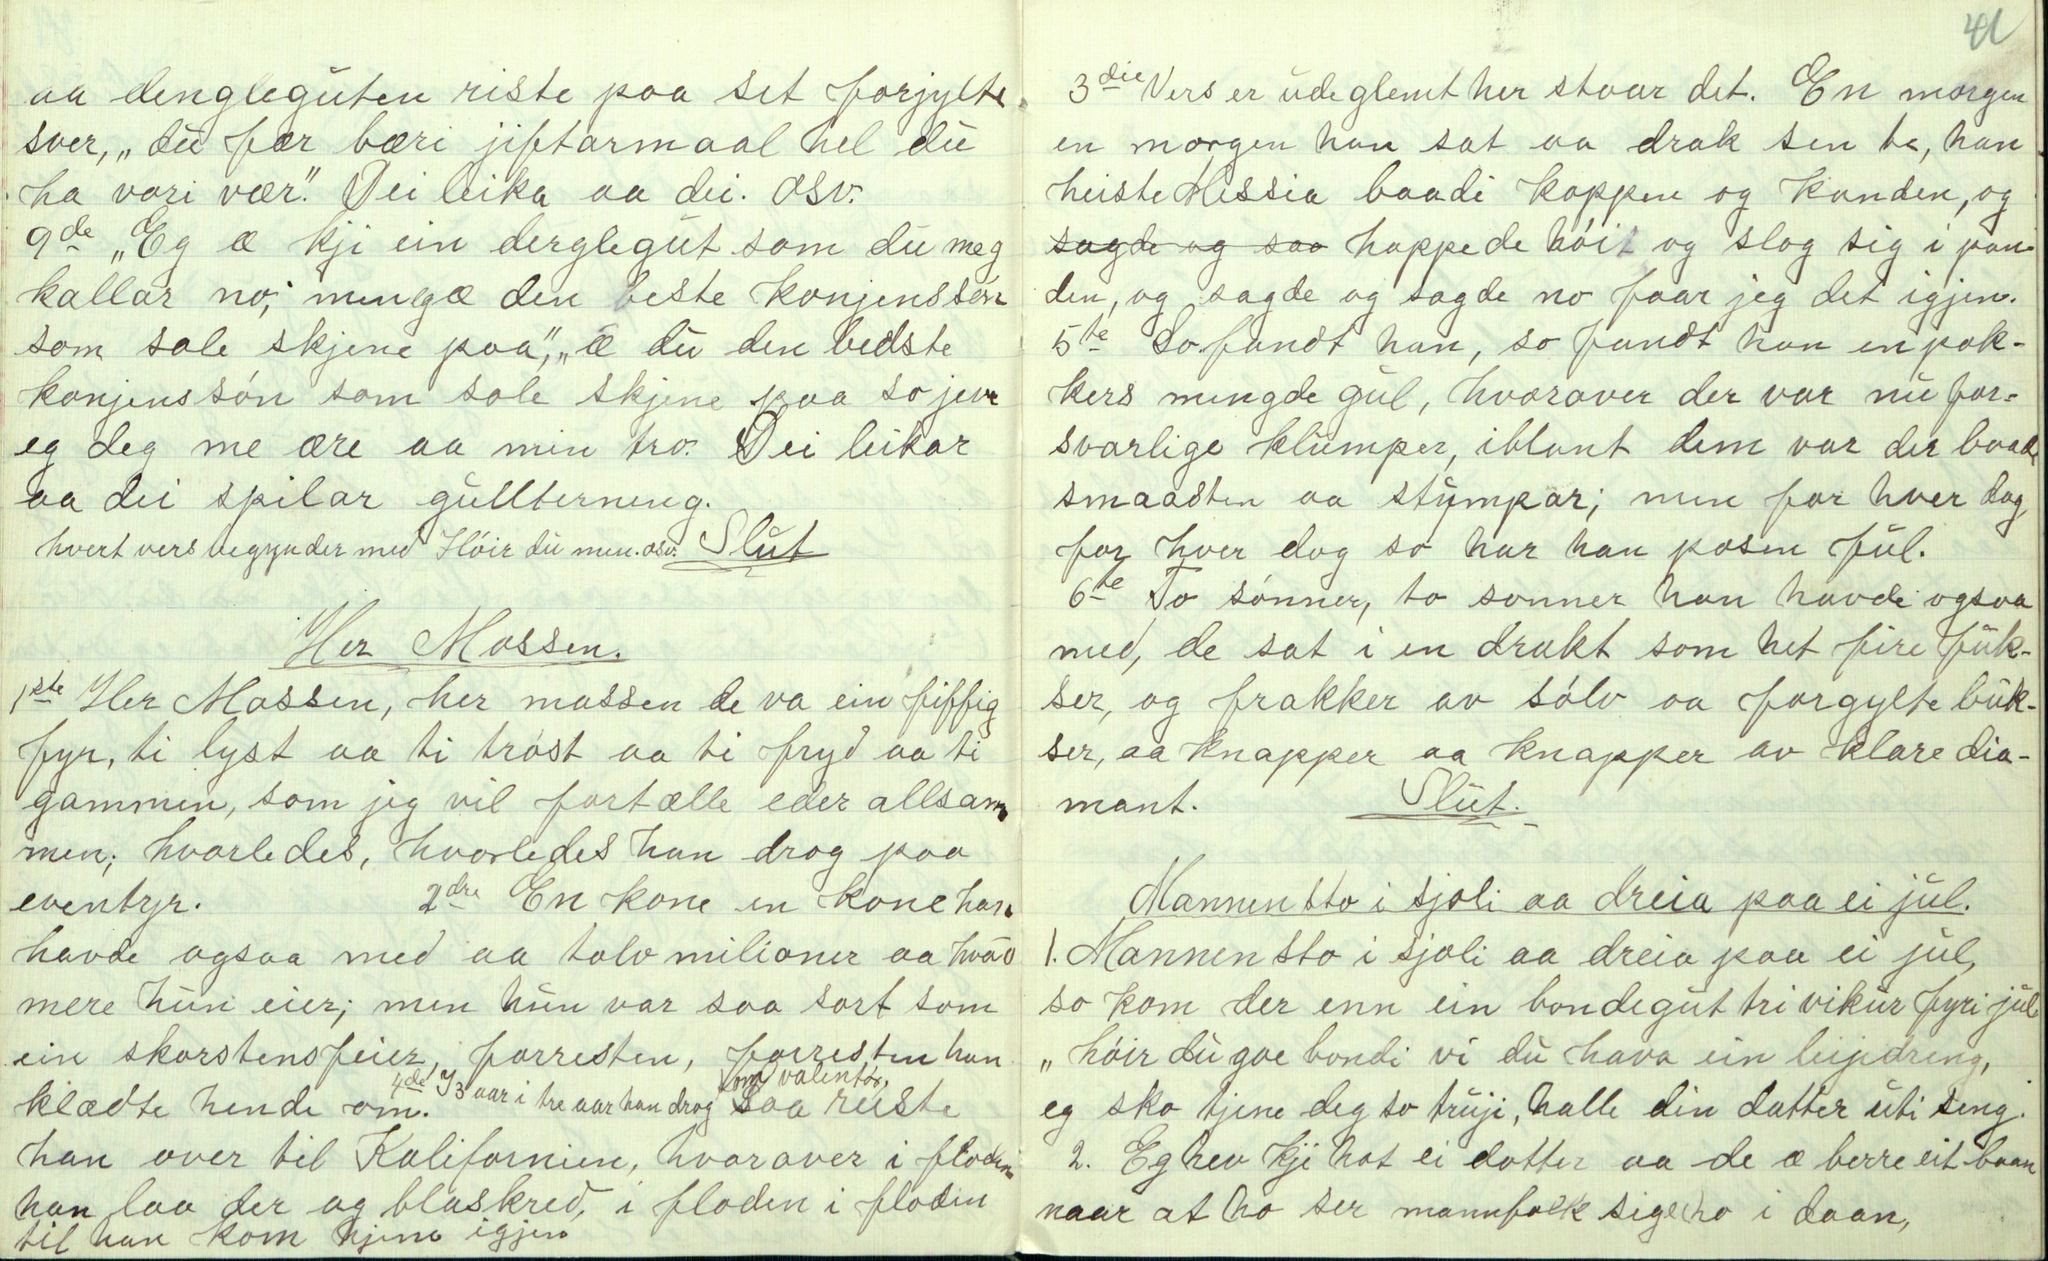 aa dengleguten riste paa set forjylte
sver, „du fær bæri jiftarmaal hel du
ha vori vær." Dei leika aa dei. osv.
9de „Eg æ kji ein derglegut som du meg
kallar no, men eg æ den beste konjenssøn
som sole skjene paa", „æ du den bedste
konjenssøn som sole skjene paa so jevr
eg deg me ære aa min tro. Dei leikar
aa dei spilar gullterneng.
hvert vers begynder med Høir du men. osv. Slut
Her Massen.
1ste Her Massen, her massen de va ein fiffig
fyr, ti lyst aa ti trøst aa ti fryd aa ti
gammen, som jeg vil fortælle eder allsam
men; hvorledes, hvorledes han drog paa
eventyr. 2dre En kone en kone han
havde ogsaa med aa tolv milioner aa hvad
mere hun eier; men hun var saa sort som
ein skorstensfeier, forresten, forresten han
klædte hende om. 4de I 3 aar i tre aar han drog som valentør, saa reiste
han over til Kalifornien, hvorover i floden
han laa der og blaskred, i floden i floden
til han kom hjem igjen
41
3die Vers er udeglemt her staar det. En morgen
en morgen han sat aa drak sen te, han
heiste Messia baadi koppen og kanden, og
sagde og saa hoppede høit og slog sig i pan-
den, og sagde og sagde no faar jeg det igjen.
5te So fandt han, so fandt han en pok-
kers mengde gul, hvorover der var nu for-
svarlige klumper, iblant dem var der baade
smaasten aa stumpar; men for hver dag
for hver dag so har han posen ful.
6te To sønner, to sønner han havde ogsaa
med, de sat i en drakt som het fire fuk-
ser, og frakker av sølv aa forgylte buk-
ser, aa knapper aa knapper av klare dia-
mant. Slut.
Mannen sto i sjoli aa dreia paa ei jul.
1. Mannen sto i sjoli aa dreia paa ei jul,
so kom der enn ein bondegut tri vikur fyri jul
„høir du goe bondi vi du hava ein leijedreng,
eg sko tjene deg so truji, halle din datter uti seng.
2. Eg hev kji hot ei dotter aa de æ berre eit baan
naar at ho ser mannfolk sige ho i daan,